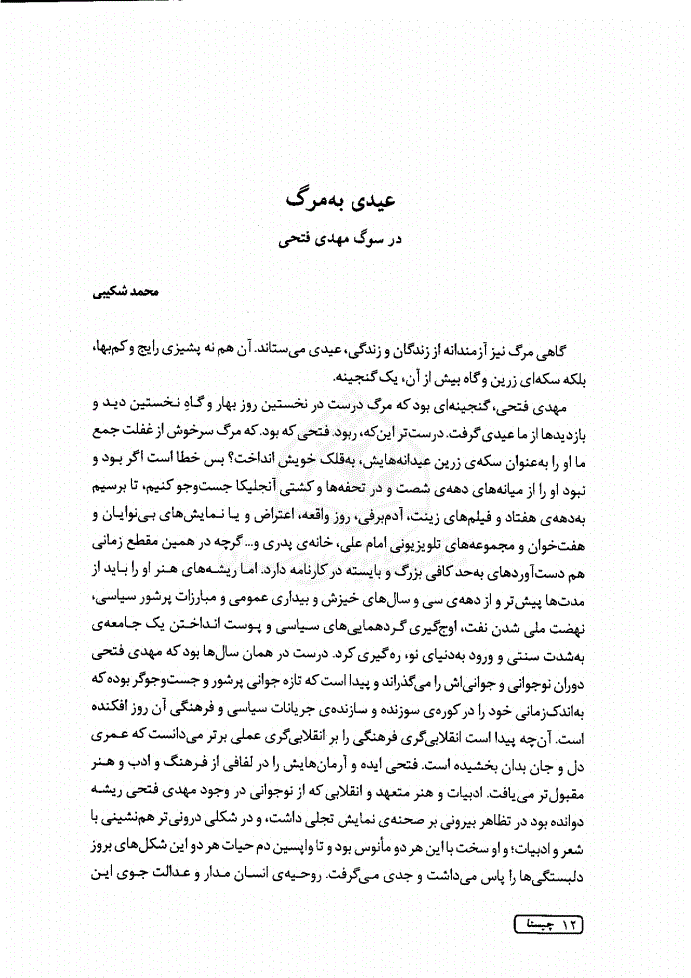 عیدی به‌مرگ
در سوگ مهدی فتحی
محمد شکیبی
گاهی مرگ نیز آزمندانه از زندگان و زندگی، عیدی می‌ستاند. آن هم نه پشیزی رایج و کم‌بها،
بلکه سکه‌ای زرین و گاه بیش از آن، یک گنجینه.
مهدی فتحی، گنجینه‌ای بود که مرگ درست در نخستین روز بهار و گاهِ نخستین دید و
بازدیدها از ما عیدی گرفت. درست‌تر این‌که، ربود. فتحی که بود. که مرگ سرخوش از غفلت جمع
ما او را به‌عنوان سکه‌ی زرین عیدانه‌هایش، به‌قلک خویش انداخت؟ بس خطا است اگر بود و
نبود او را از میانه‌های دهه‌ی شصت و در تحفه‌ها و کشتی آنجلیکا جست‌وجو کنیم، تا برسیم
به‌دهه‌ی هفتاد و فیلم‌های زینت، آدم‌برفی، روز واقعه، اعتراض و یـا نـمایش‌های بی‌نوایان و
هفت‌خوان و مجموعه‌های تلویزیونی امام علی، خانه‌ی پدری و... گرچه در همین مقطع زمانی
هم دست‌آوردهای به‌حد کافی بزرگ و بایسته در کارنامه دارد. اما ریشه‌های هنر او را بـاید از
مدت‌ها پیش‌تر و از دهه‌ی سی و سال‌های خیزش و بیداری عمومی و مبارزات پرشور سیاسی،
نهضت ملی شدن نفت، اوج‌گیری گردهمایی‌های سـیاسی و پـوست انـداخـتن یک جـامعه‌ی
به‌شدت سنتی و ورود به‌دنیای نو، ره‌گیری کرد. درست در همان سال‌ها بود که مهدی فتحی
دوران نوجوانی و جوانی‌اش را می‌گذراند و پیدا است که تازه جوانی پرشور و جست‌وجوگر بوده که
به‌اندک‌زمانی خود را در کوره‌ی سوزنده و سازنده‌ی جریانات سیاسی و فرهنگی آن روز افکنده
است. آن‌چه پیدا است انقلابی‌گری فرهنگی را بر انقلابی‌گری عملی برتر می‌دانست که عمری
دل و جان بدان بخشیده است. فتحی ایده و آرمان‌هایش را در لفافی از فـرهنگ و ادب و هـنر
مقبول‌تر می‌یافت. ادبیات و هنر متعهد و انقلابی که از نوجوانی در وجود مهدی فتحی ریشه
دوانده بود در تظاهر بیرونی بر صحنه‌ی نمایش تجلی داشت، و در شکلی درونی‌تر هم‌نشینی با
شعر و ادبیات؛ و او سخت با این هر دو مأنوس بود و تا واپسین دم حیات هر دو این شکل‌های بروز
دلبستگی‌ها را پاس می‌داشت و جدی مـی‌گرفت. روحیه‌ی انسان مدار و عدالت جوی ایـن
۱۲ چیستا